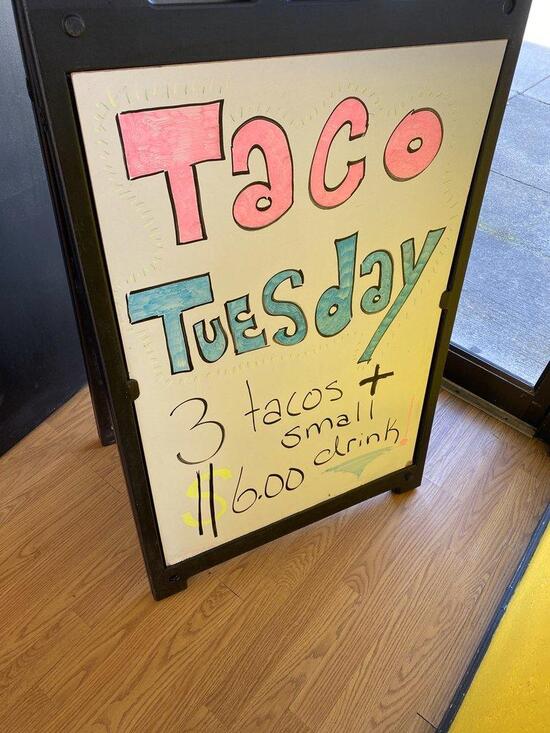 Taco
Tuesday
3 tacos +
small
$6.00 drink!